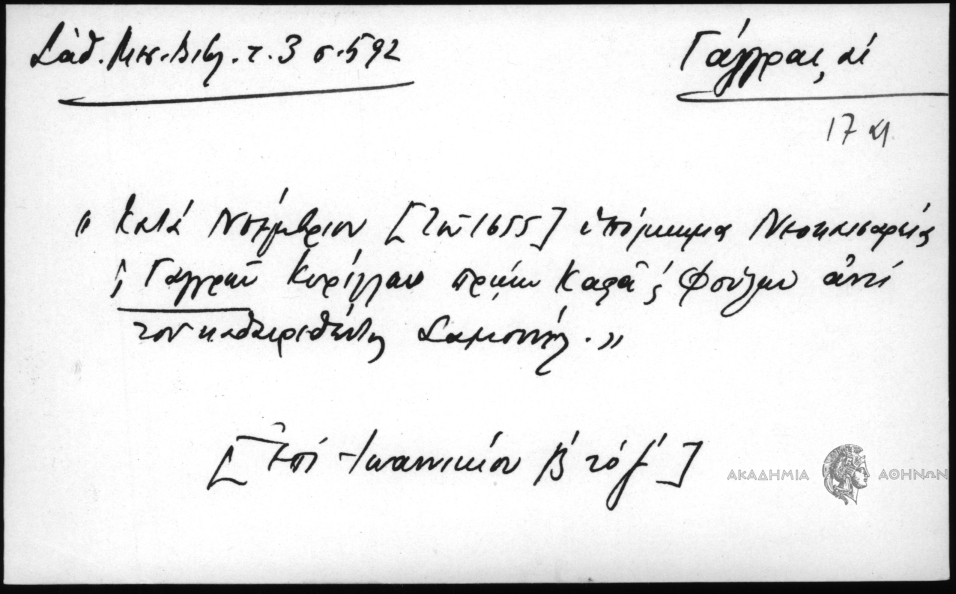 Σάθ. Μεσ. Βιβλ. τ. 3 σ. 592
Γάγγραι, αἱ
17 αἰ
"Κατὰ Νοέμβριον [τοῦ 1655] ὑπόμνημα Νεοκαισαρείας
ς Γαγγρῶν Κυρίλλου πρώην Καφᾶ ς Φούλων ἀντὶ
τοῦ καθαιρεθέντος Σαμουήλ."
[Ἐπὶ Ἰωαννικίου Β' τὸ γ']
ΑΚΑΔΗΜΙΑ ΑΘΗΝΩΝ